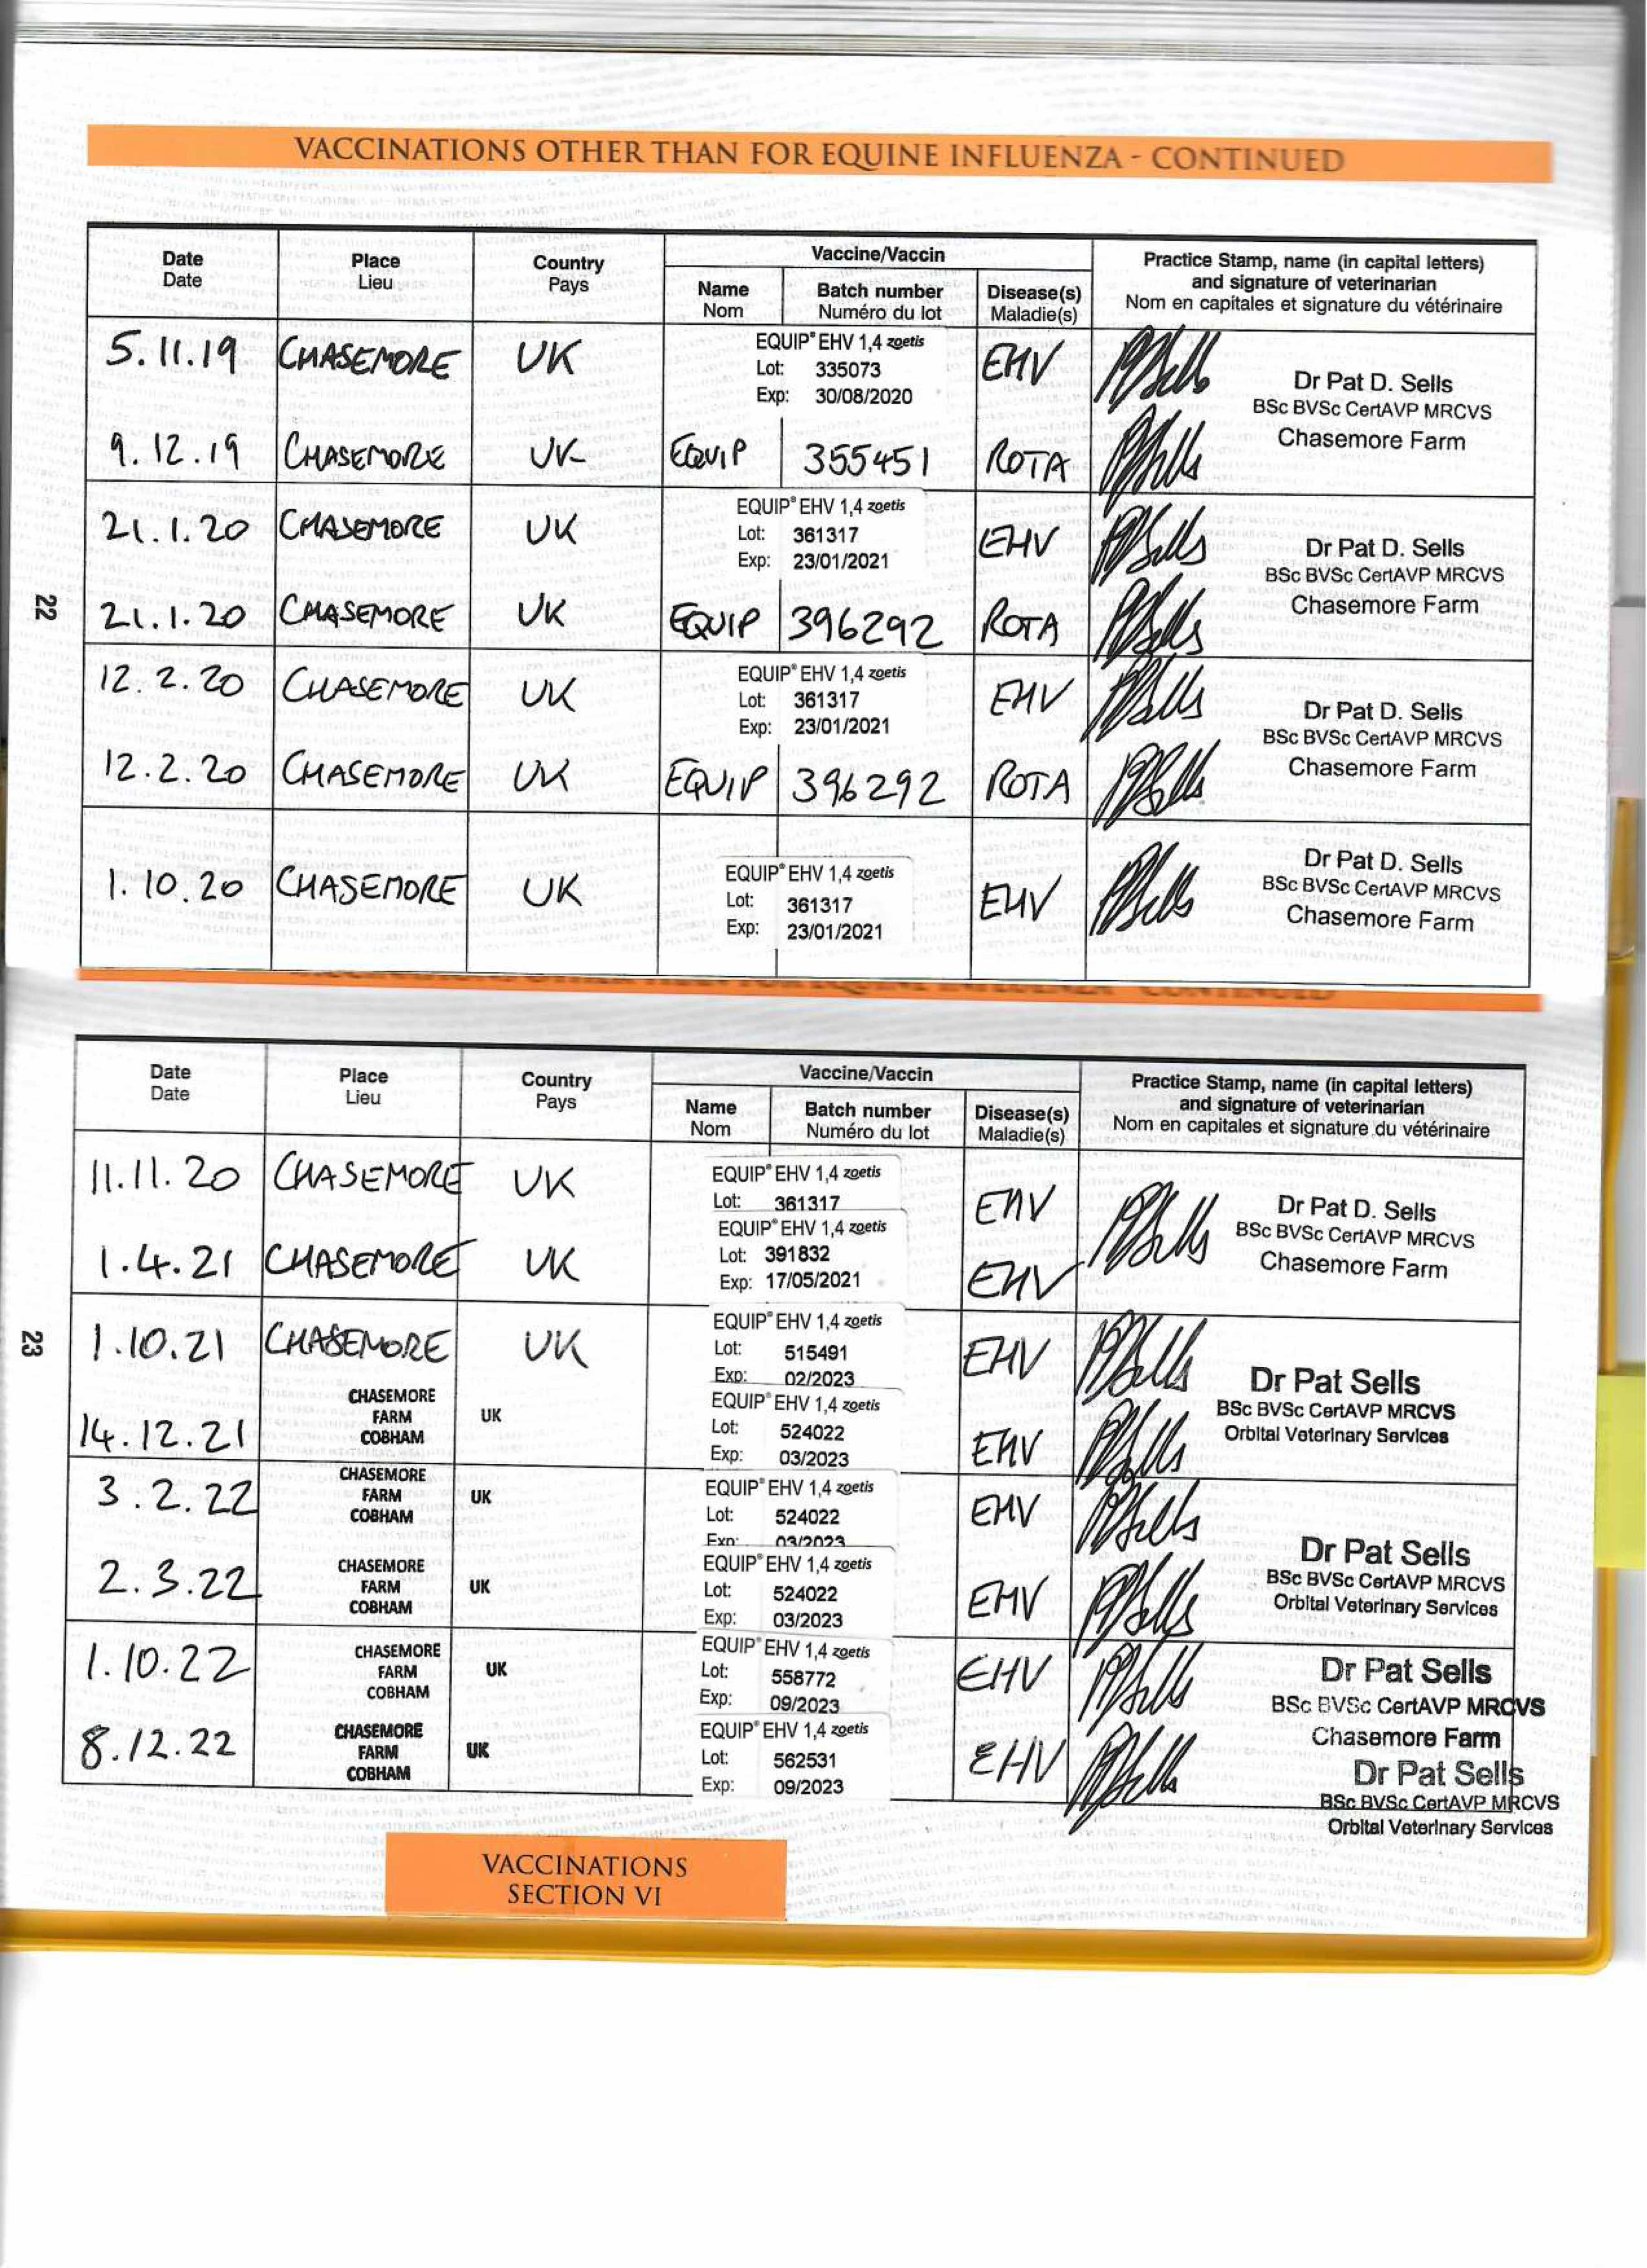 VACCINATIONS OTHER THAN FOR EQUINE INFLUENZA - CONTINUED
Date Date
Place Lieu
Country Pays
Vaccine/Vaccin
Name Nom
Batch number Numéro du lot
Disease(s) Maladie(s)
Practice Stamp, name (in capital letters)
and signature of veterinarian
Nom en capitales et signature du vétérinaire
5.11.19 CHASEMORE UK EQUIP® EHV 1,4 zoetis Lot: 335073 Exp: 30/08/2020 EHV
Dr Pat D. Sells
BSc BVSc CertAVP MRCVS
Chasemore Farm
9.12.19 CHASEMORE UK EQUIP 355451 ROTA
21.1.20 CHASEMORE UK EQUIP® EHV 1,4 zoetis Lot: 361317 Exp: 23/01/2021 EHV
Dr Pat D. Sells
BSc BVSc CertAVP MRCVS
Chasemore Farm
21.1.20 CHASEMORE UK EQUIP 396292 ROTA
22
12.2.20 CHASEMORE UK EQUIP® EHV 1,4 zoetis Lot: 361317 Exp: 23/01/2021 EHV
Dr Pat D. Sells
BSc BVSc CertAVP MRCVS
Chasemore Farm
12.2.20 CHASEMORE UK EQUIP 396292 ROTA
1.10.20 CHASEMORE UK EQUIP® EHV 1,4 zoetis Lot: 361317 Exp: 23/01/2021 EHV
Dr Pat D. Sells
BSc BVSc CertAVP MRCVS
Chasemore Farm
Date Date
Place Lieu
Country Pays
Vaccine/Vaccin
Name Nom
Batch number Numéro du lot
Disease(s) Maladie(s)
Practice Stamp, name (in capital letters)
and signature of veterinarian
Nom en capitales et signature du vétérinaire
11.11.20 CHASEMORE UK EQUIP® EHV 1,4 zoetis Lot: 361317 EHV
Dr Pat D. Sells
BSc BVSc CertAVP MRCVS
Chasemore Farm
1.4.21 CHASEMORE UK EQUIP® EHV 1,4 zoetis Lot: 391832 Exp: 17/05/2021 EHV
23
1.10.21 CHASEMORE UK EQUIP® EHV 1,4 zoetis Lot: 515491 Exp: 02/2023 EHV
Dr Pat Sells
BSc BVSc CertAVP MRCVS
Orbital Veterinary Services
14.12.21 CHASEMORE FARM COBHAM UK EQUIP® EHV 1,4 zoetis Lot: 524022 Exp: 03/2023 EHV
3.2.22 CHASEMORE FARM COBHAM UK EQUIP® EHV 1,4 zoetis Lot: 524022 Exp: 03/2023 EHV
Dr Pat Sells
BSc BVSc CertAVP MRCVS
Orbital Veterinary Services
2.3.22 CHASEMORE FARM COBHAM UK EQUIP® EHV 1,4 zoetis Lot: 524022 Exp: 03/2023 EHV
1.10.22 CHASEMORE FARM COBHAM UK EQUIP® EHV 1,4 zoetis Lot: 558772 Exp: 09/2023 EHV
Dr Pat Sells
BSc BVSc CertAVP MRCVS
Chasemore Farm
8.12.22 CHASEMORE FARM COBHAM UK EQUIP® EHV 1,4 zoetis Lot: 562531 Exp: 09/2023 EHV
Dr Pat Sells
BSc BVSc CertAVP MRCVS
Orbital Veterinary Services
VACCINATIONS
SECTION VI